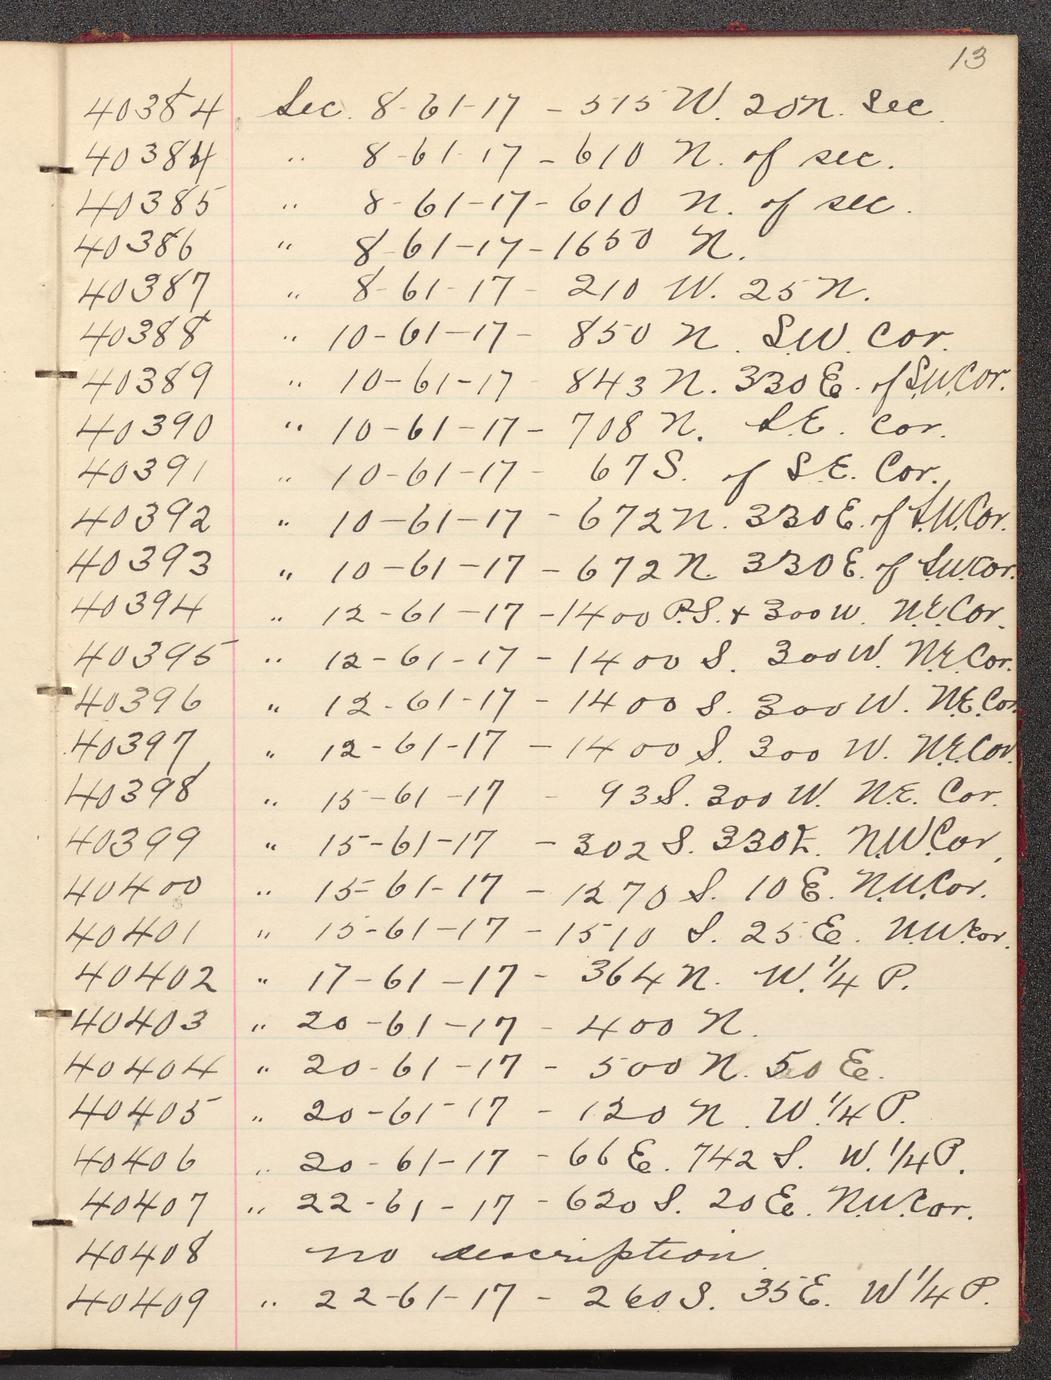 13
40384 Sec. 8-61-17 - 515 W. 20 N. Sec.
40384 " 8-61-17 - 610 N. of sec.
40385 " 8-61-17 - 610 N. of sec.
40386 " 8-61-17 - 1650 N.
40387 " 8-61-17 - 210 W. 25 N.
40388 " 10-61-17 - 850 N. S.W. Cor.
40389 " 10-61-17 - 843 N. 330 E. of S.W. Cor.
40390 " 10-61-17 - 708 N. S.E. Cor.
40391 " 10-61-17 - 67 S. of S.E. Cor.
40392 " 10-61-17 - 672 N. 330 E. of S.W. Cor.
40393 " 10-61-17 - 672 N. 330 E. of S.W. Cor.
40394 " 12-61-17 - 1400 P.S. + 300 W. N.E. Cor.
40395 " 12-61-17 - 1400 S. 300 W. N.E. Cor.
40396 " 12-61-17 - 1400 S. 300 W. N.E. Cor.
40397 " 12-61-17 - 1400 S. 300 W. N.E. Cor.
40398 " 15-61-17 - 93 S. 300 W. N.E. Cor.
40399 " 15-61-17 - 302 S. 330 E. N.W. Cor.
40400 " 15-61-17 - 1270 S. 10 E. N.W. Cor.
40401 " 15-61-17 - 1510 S. 25 E. N.W. Cor.
40402 " 17-61-17 - 364 N. W. 1/4 P.
40403 " 20-61-17 - 400 N.
40404 " 20-61-17 - 500 N. 50 E.
40405 " 20-61-17 - 120 N. W. 1/4 P.
40406 " 20-61-17 - 66 E. 742 S. W. 1/4 P.
40407 " 22-61-17 - 620 S. 20 E. N.W. Cor.
40408 no description
40409 " 22-61-17 - 260 S. 35 E. W 1/4 P.